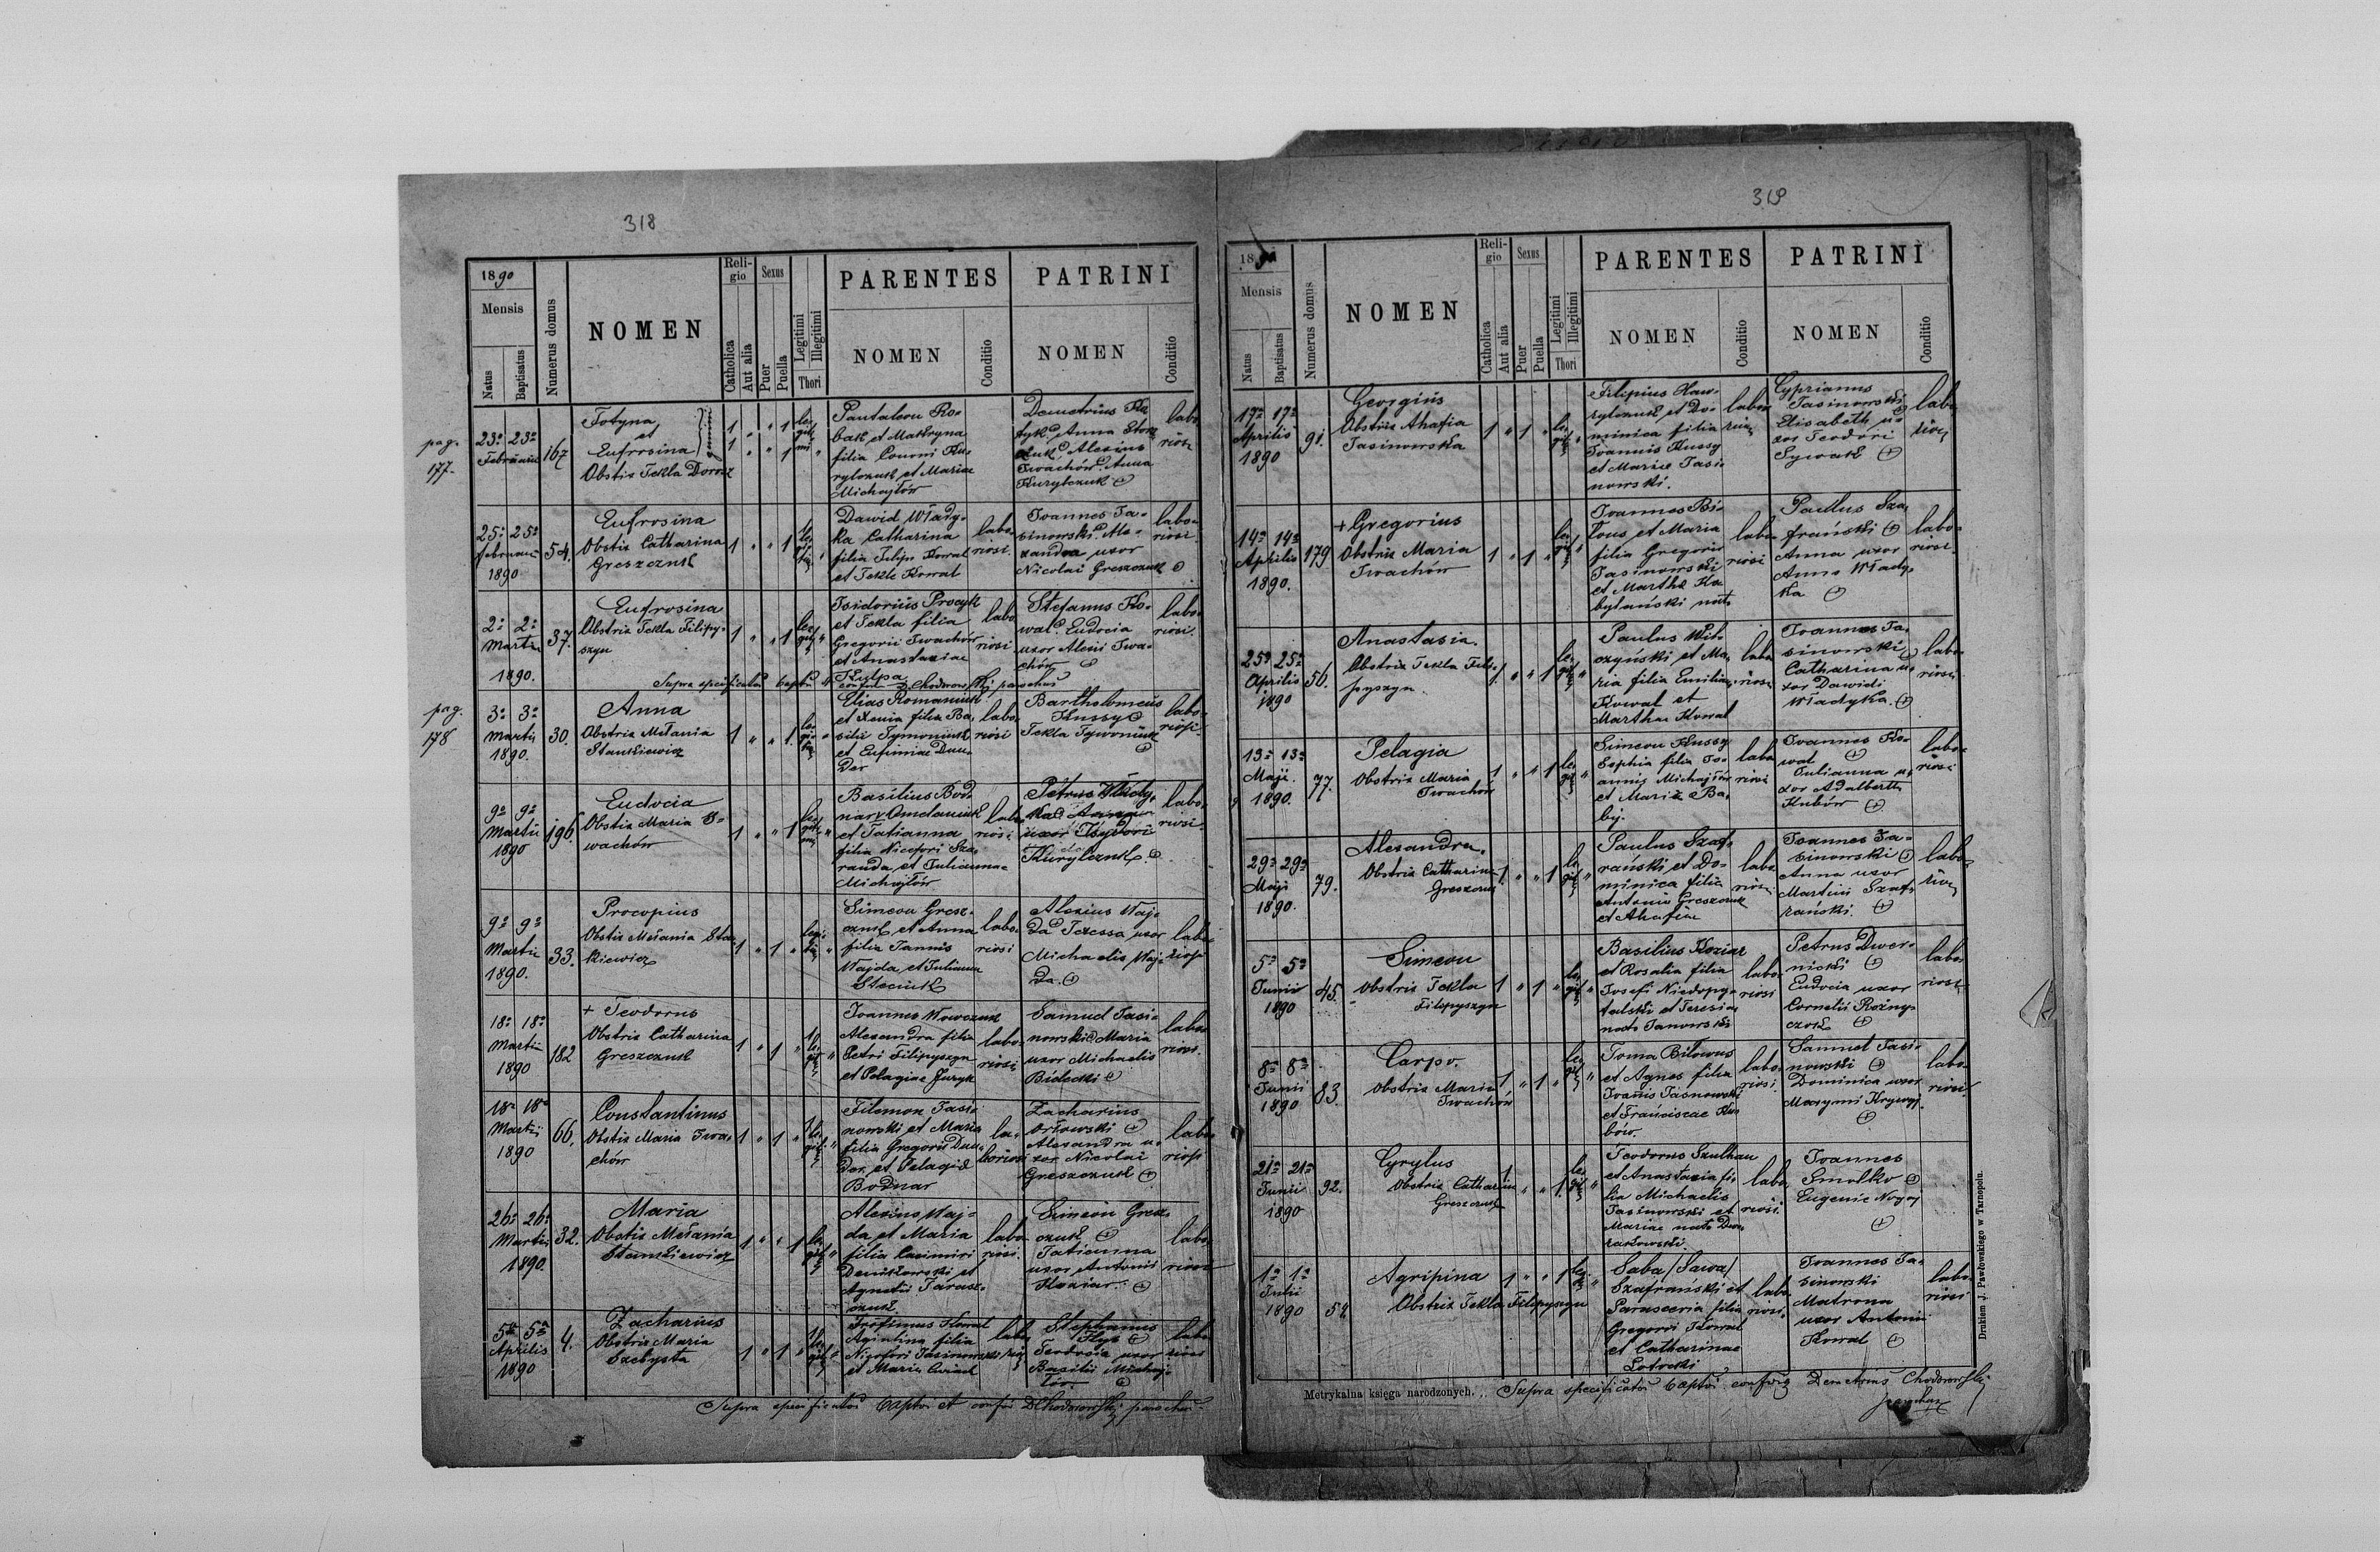 318
1890
Mensis
Natus
Baptisatus
Numerus domus
NOMEN
Religio
Catholica
Aut alia
Sexus
Puer
Puella
Legitimi
Illegitimi
Thori
PARENTES
NOMEN
Conditio
PATRINI
NOMEN
Conditio
pag.
177.
23a 23a
Februarii
167
Fotyna
et
Eufrosina
Obstix Tekla
1 " " 1
1 " " 1
Pantaleon Ro-
bak et Makryna
filia
rylczuk et Mariae
Michajłów
Demetrius
Anna
Alexius
Iwachów Anna
Kurylczuk
labo-
riosi
25a 25a
Februarii
1890
54.
Eufrosina
Obstix Catharina
Greszczuk
1 " " 1
Dawid Włady-
ka Catharina
filia Filip Kowal
et Tekla Kowal
labo-
riosi.
Joannes Ja-
sinowski
uxor
Nicolai Greszczuk
labo-
riosi.
2a 2a
Martii
1890.
37.
Eufrosina
Obstrix Tekla Filipy-
szyn
1 " " 1
Isidorius Procyk
et Tekla filia
Gregorii Iwachów
et Anastasiae
labo
riosi
Stefanus Ko-
wal. Eudocia
uxor Alexii Iwa-
chów
labo-
riosi.
Supra specificatos
parochus
pag.
178
3a 3a
Martii
1890.
30.
Anna
Obstrix Mełania
Stankiewicz
1 " " 1.
Elias Romaniuk
et Xenia filia Ba-
silii Tymoniuk
et Eufimiae Dun-
der
labo-
riosi
Bartholomeus
Hussy
Tekla Tywoniuk
labo-
riosi.
9a 9a
Martii
1890
196.
Eudocia
Obstix Maria I-
wachów
1 " " 1
Basilius Bod-
nar
et Tatianna
filia Nicefori Sza-
randa et Julianna
Michajłów
labo-
riosi
Petrus Włady-
ka Anna
uxor Isydori
Kurylczuk
labo-
riosi.
9a 9a
Martii
1890.
33.
Procopius
Obstix Mełania Stan-
kiewicz
1 " 1 "
Simeon Gresz-
czuk et Anna
filia Joannis
Wajda et Julianna
Steciuk
labo-
riosi
Alexius Waj-
da Teressa uxor
Michaelis Waj-
da.
labo-
riosi
18a 18a
Martii
1890
182
+ Teodorus
Obstrix Catharina
Greszczuk
1 " 1 "
Joannes Wowczuk
Alexandra filia
Petri Filipyszyn
et Pelagiae Juryk
labo-
riosi
Samuel Jasi-
nowski Maria
uxor Michaelis
Bidecki
labo-
riosi.
18a 18a
Martii
1890
66.
Constantinus
Obstix Maria Iwa-
chów
1 " 1 "
Filemon Jasi-
nowski et Maria
filia Gregorii Dun-
der et Pelagia
Bodnar
la-
boriosi
Zacharius
Orłowski
Alexandra u-
xor Nicolai
Greszczuk
labo-
riosi
26a 26a
Martii
1890.
32.
Maria
Obstix Mełania
Stankiewicz
1 " " 1
Alexius Waj-
da et Maria
filia Casimiri
Denikowski et
Agnetis Tarasz-
czuk.
labo-
riosi.
Simeon Gresz-
czuk
Tatianna
uxor Antonii
Koziar.
labo-
riosi
5a 5a
Aprilis
1890
4.
Zacharius
Obstrix Maria
Szełysta
1 " 1 "
Trofimus Kowal
filia
Nicefori Jasinowski
et Maria
labo
Stephanus
Teodosia uxor
Basilii Michaj-
łów.
labo
riosi
Supra specificatos baptisavi et confirmavi DChodorowski parochus.
319
1890
Mensis
Natus
Baptisatus
Numerus domus
NOMEN
Religio
Catholica
Aut alia
Sexus
Puer
Puella
Legitimi
Illegitimi
Thori
PARENTES
NOMEN
Conditio
PATRINI
NOMEN
Conditio
17a 17a
Aprilis
1890
91.
Georgius
Obstrix Ahafia
Jasinowska
1 " 1 "
Filipius Haw-
rylczuk et Do-
minica filia
Joannis Hussy
et Mariae Jasi-
nowski.
labo
Cyprianus
Jasinowski
Elisabeth u-
xor Teodori
Sywak
labo
14a 14a
Aprilis
1890.
179
+ Gregorius
Obstrix Maria
Iwachów
1 " 1 "
Joannes Bi-
łous et Maria
filia Gregorii
Jasinowski
et Martha Ka
bylański nata
labo-
riosi
Paulus Sza-
frański
Anna uxor
Anna Włady-
ka
labo-
riosi.
25a 25a
Aprilis
1890
56.
Anastasia.
Obstrix Tekla Fili-
pyszyn.
1. " " 1
Paulus Wil-
czyński et Ma-
ria filia Emilian
Kowal et
Marthae Kowal
labo
riosi
Joannes Ja-
sinowski
Catharina u-
xor Dawidi
Władyka.
labo-
riosi
13a 13a
Maji.
1890.
77.
Pelagia
Obstrix Maria
Iwachów
1 " " 1
Simeon Hussy
Sophia filia Jo-
annis Michajłów
et Maria Ba-
bij.
labo
riosi
Joannes Ko-
wal
Julianna u-
xor Adalberth
Kubów
labo-
riosi
29a 29a
Maji
1890.
79.
Alexandra.
Obstrix Catharina
Greszczuk
1. " " 1
Paulus Szaf-
rański et Do-
minica filia
Antonii Greszczuk
et Ahafia
labo
riosi
Joannes Ja-
sinowski
Anna uxor
Martini Szaf-
rański.
labo-
5a 5a
Junii
1890
45.
Simeon
Obstrix Tekla
Filipyszyn
1 " 1 "
Basilius Koziar
et Rosalia filia
Josefi Niedopy-
talski et Teresia
nata Janowski
labo-
riosi
Petrus Dwer-
nicki
Eudocia uxor
Cornelii Rożny-
czok
labo
riosi
8a 8a
Junii
1890
83.
Carpo.
Obstrix Maria
Iwachów
1 " 1 "
Toma Biłowus
et Agnes filia
Joannis Jasnowski
et Franciscae Ku-
bów.
labo-
riosi.
Samuel Jasi-
nowski
Dominica uxor
Maxymi Krywyj
labo
riosi.
21a 21a
Junii
1890
92.
Cyrylus
Obstrix Catharina
Greszczuk
1 " " 1.
Teodorus Szulhan
et Anastasia fi-
lia Michaelis
Jasinowski et
Mariae nata Dwo-
rakowski.
labo
riosi
Joannes
Smolko
Eugenie
1a 1a
Julii
1890
54
Agripina
Obstrix Tekla Filipyszyn
1 " " 1
Saba /Sawa/
Szafrański et
Parasceria filia
Gregorii Kowal
et Catharinae
Łotocki
labo
riosi
Joannes Ja-
sinowski
Matrona
uxor Antonii
Kowal
labo-
riosi
Metrykalna księga narodzonych.
Supra specificatos baptisavi Demetrius Chodorowski
parochus
Drukiem J. Pawłowskiego w Tarnopolu.